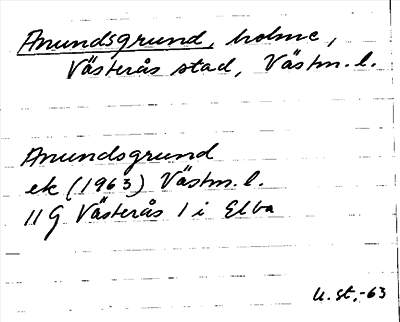 Anundsgrund, holme,
Västerås stad, Västm. l.
Anundsgrund
ek (1963) Västm. l.
11 G Västerås 1 i Elba
U. st. -63